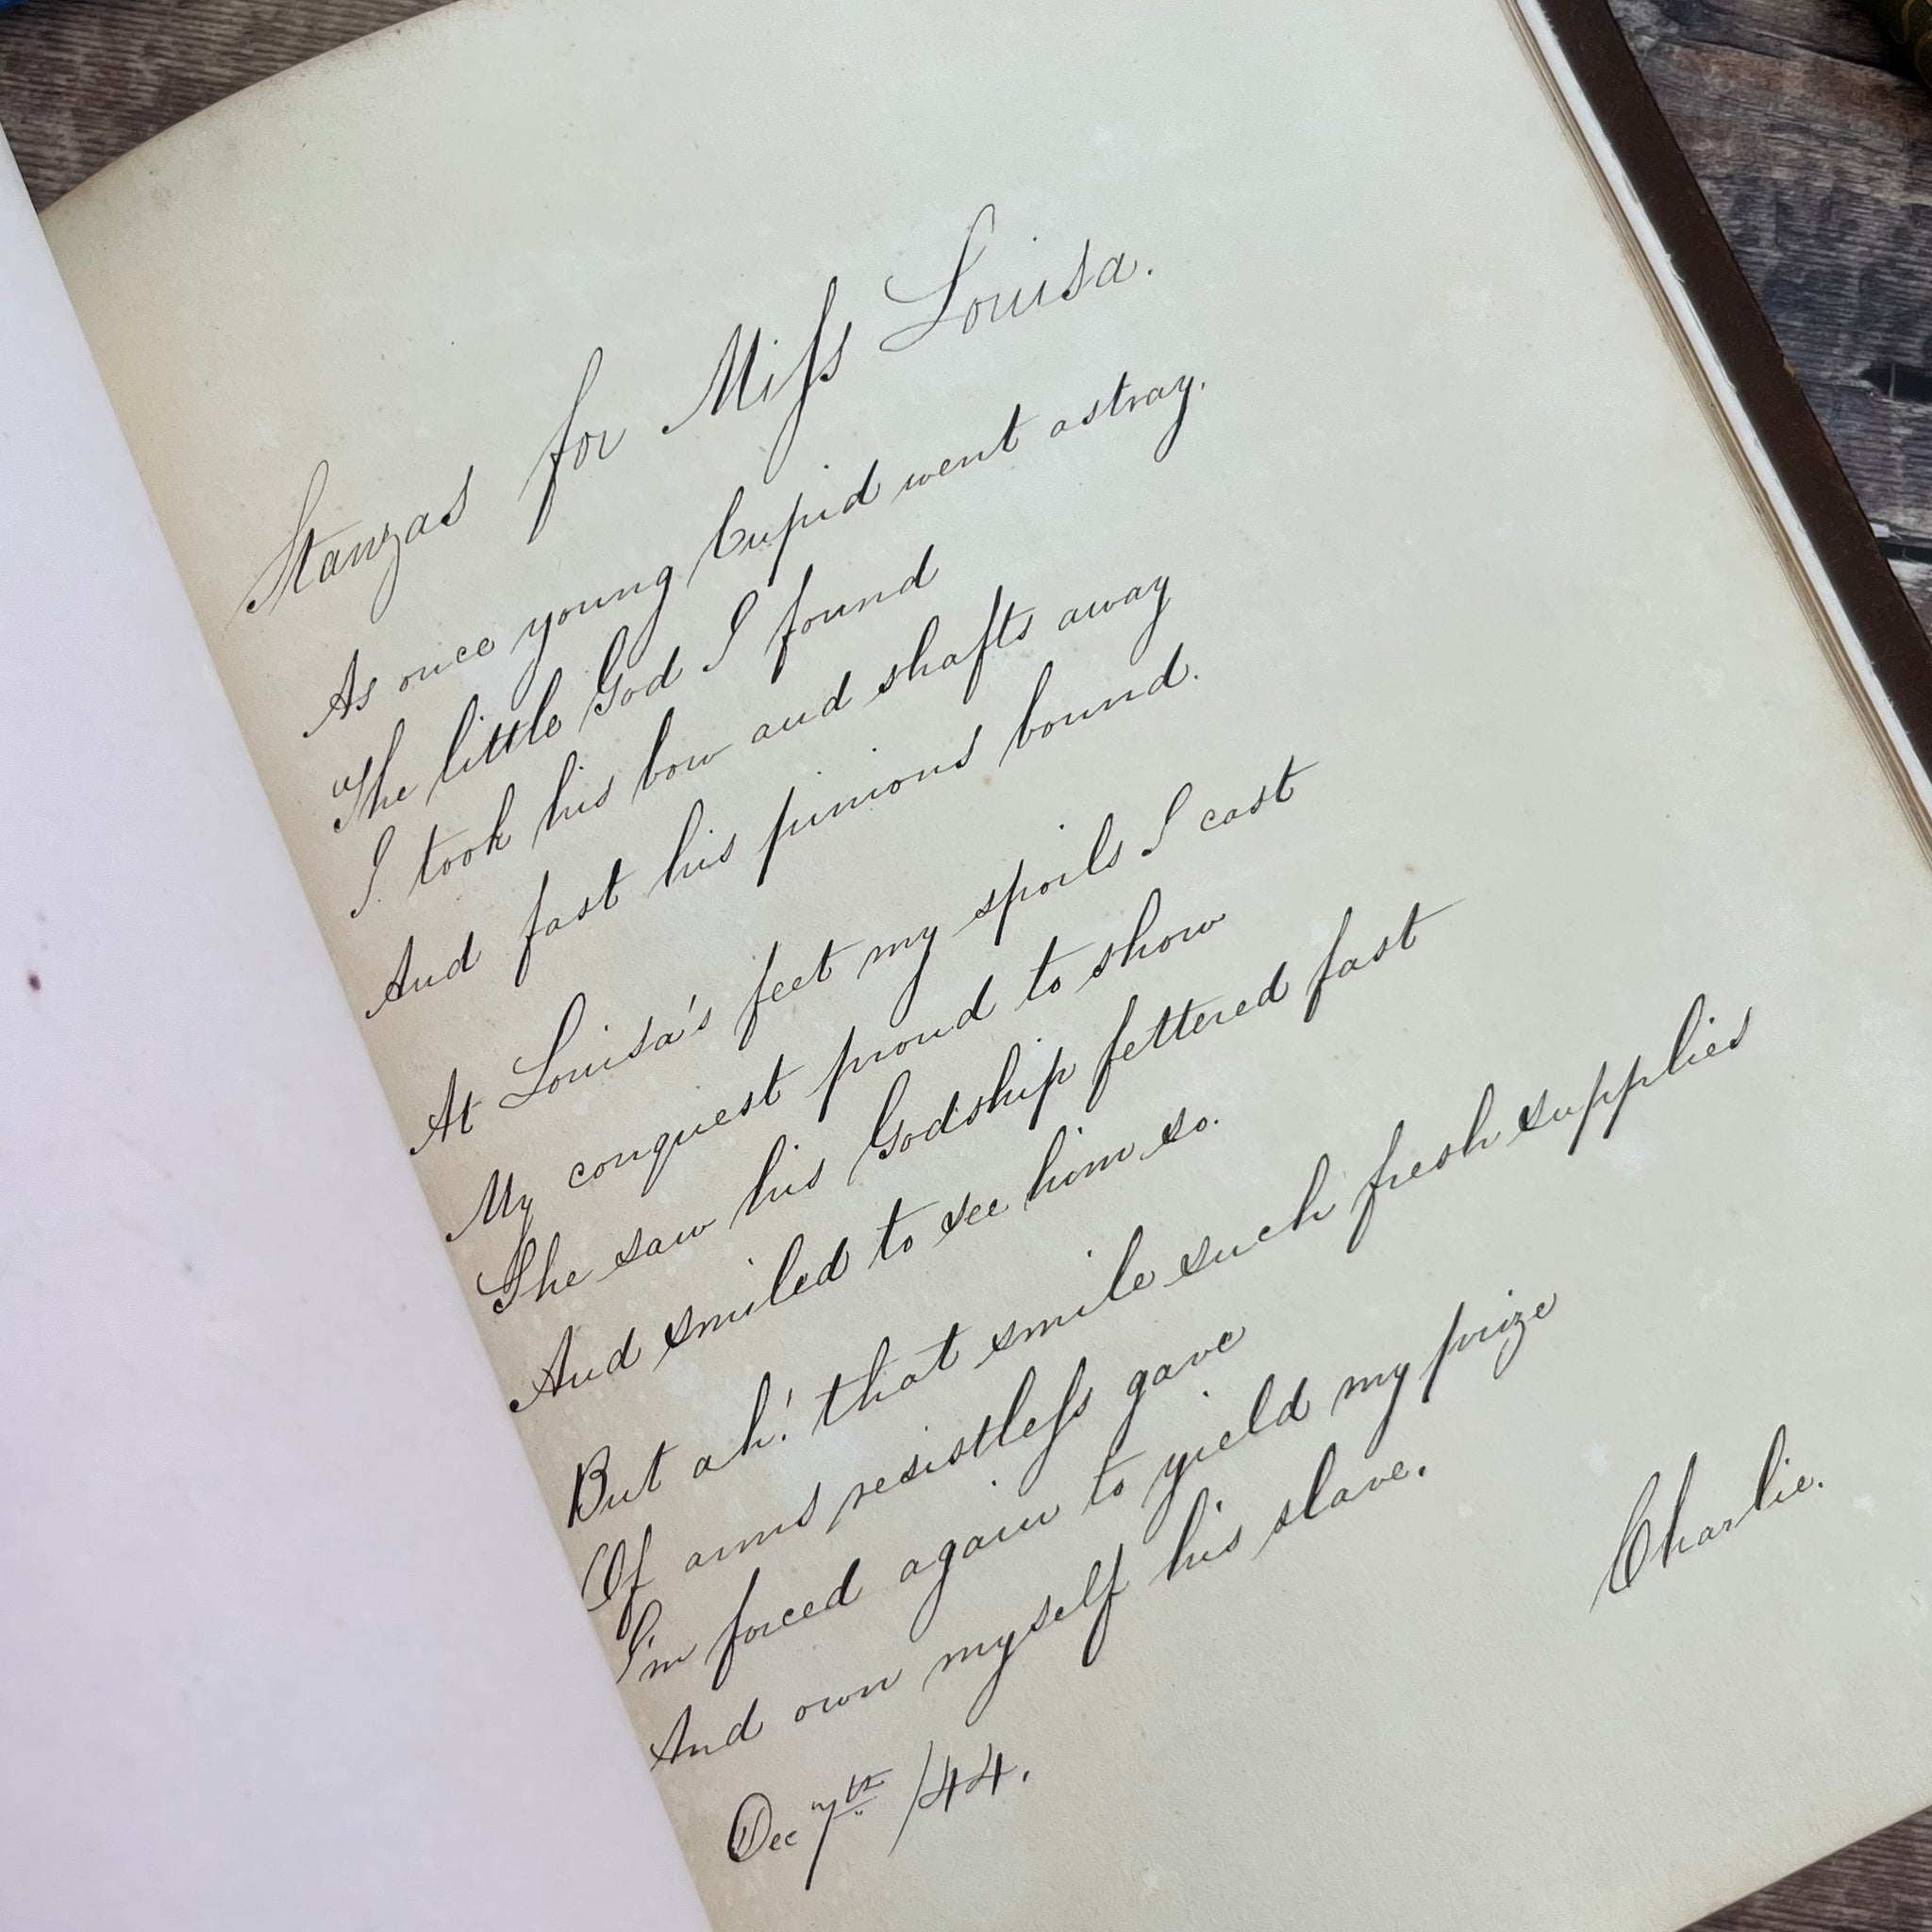 Stanzas for Miſs Louisa.
As once young Cupid went astray.
The little God I found
I took his bow and shafts away
And fast his pinions bound.
At Louisa's feet my spoils I cast
My conquest proud to show
She saw his Godship fettered fast
And smiled to see him so.
But ah! that smile such fresh supplies
Of arms resistleſs gave
I'm forced again to yield my prize
And own myself his slave.
Charlie.
Dec 7th /44.